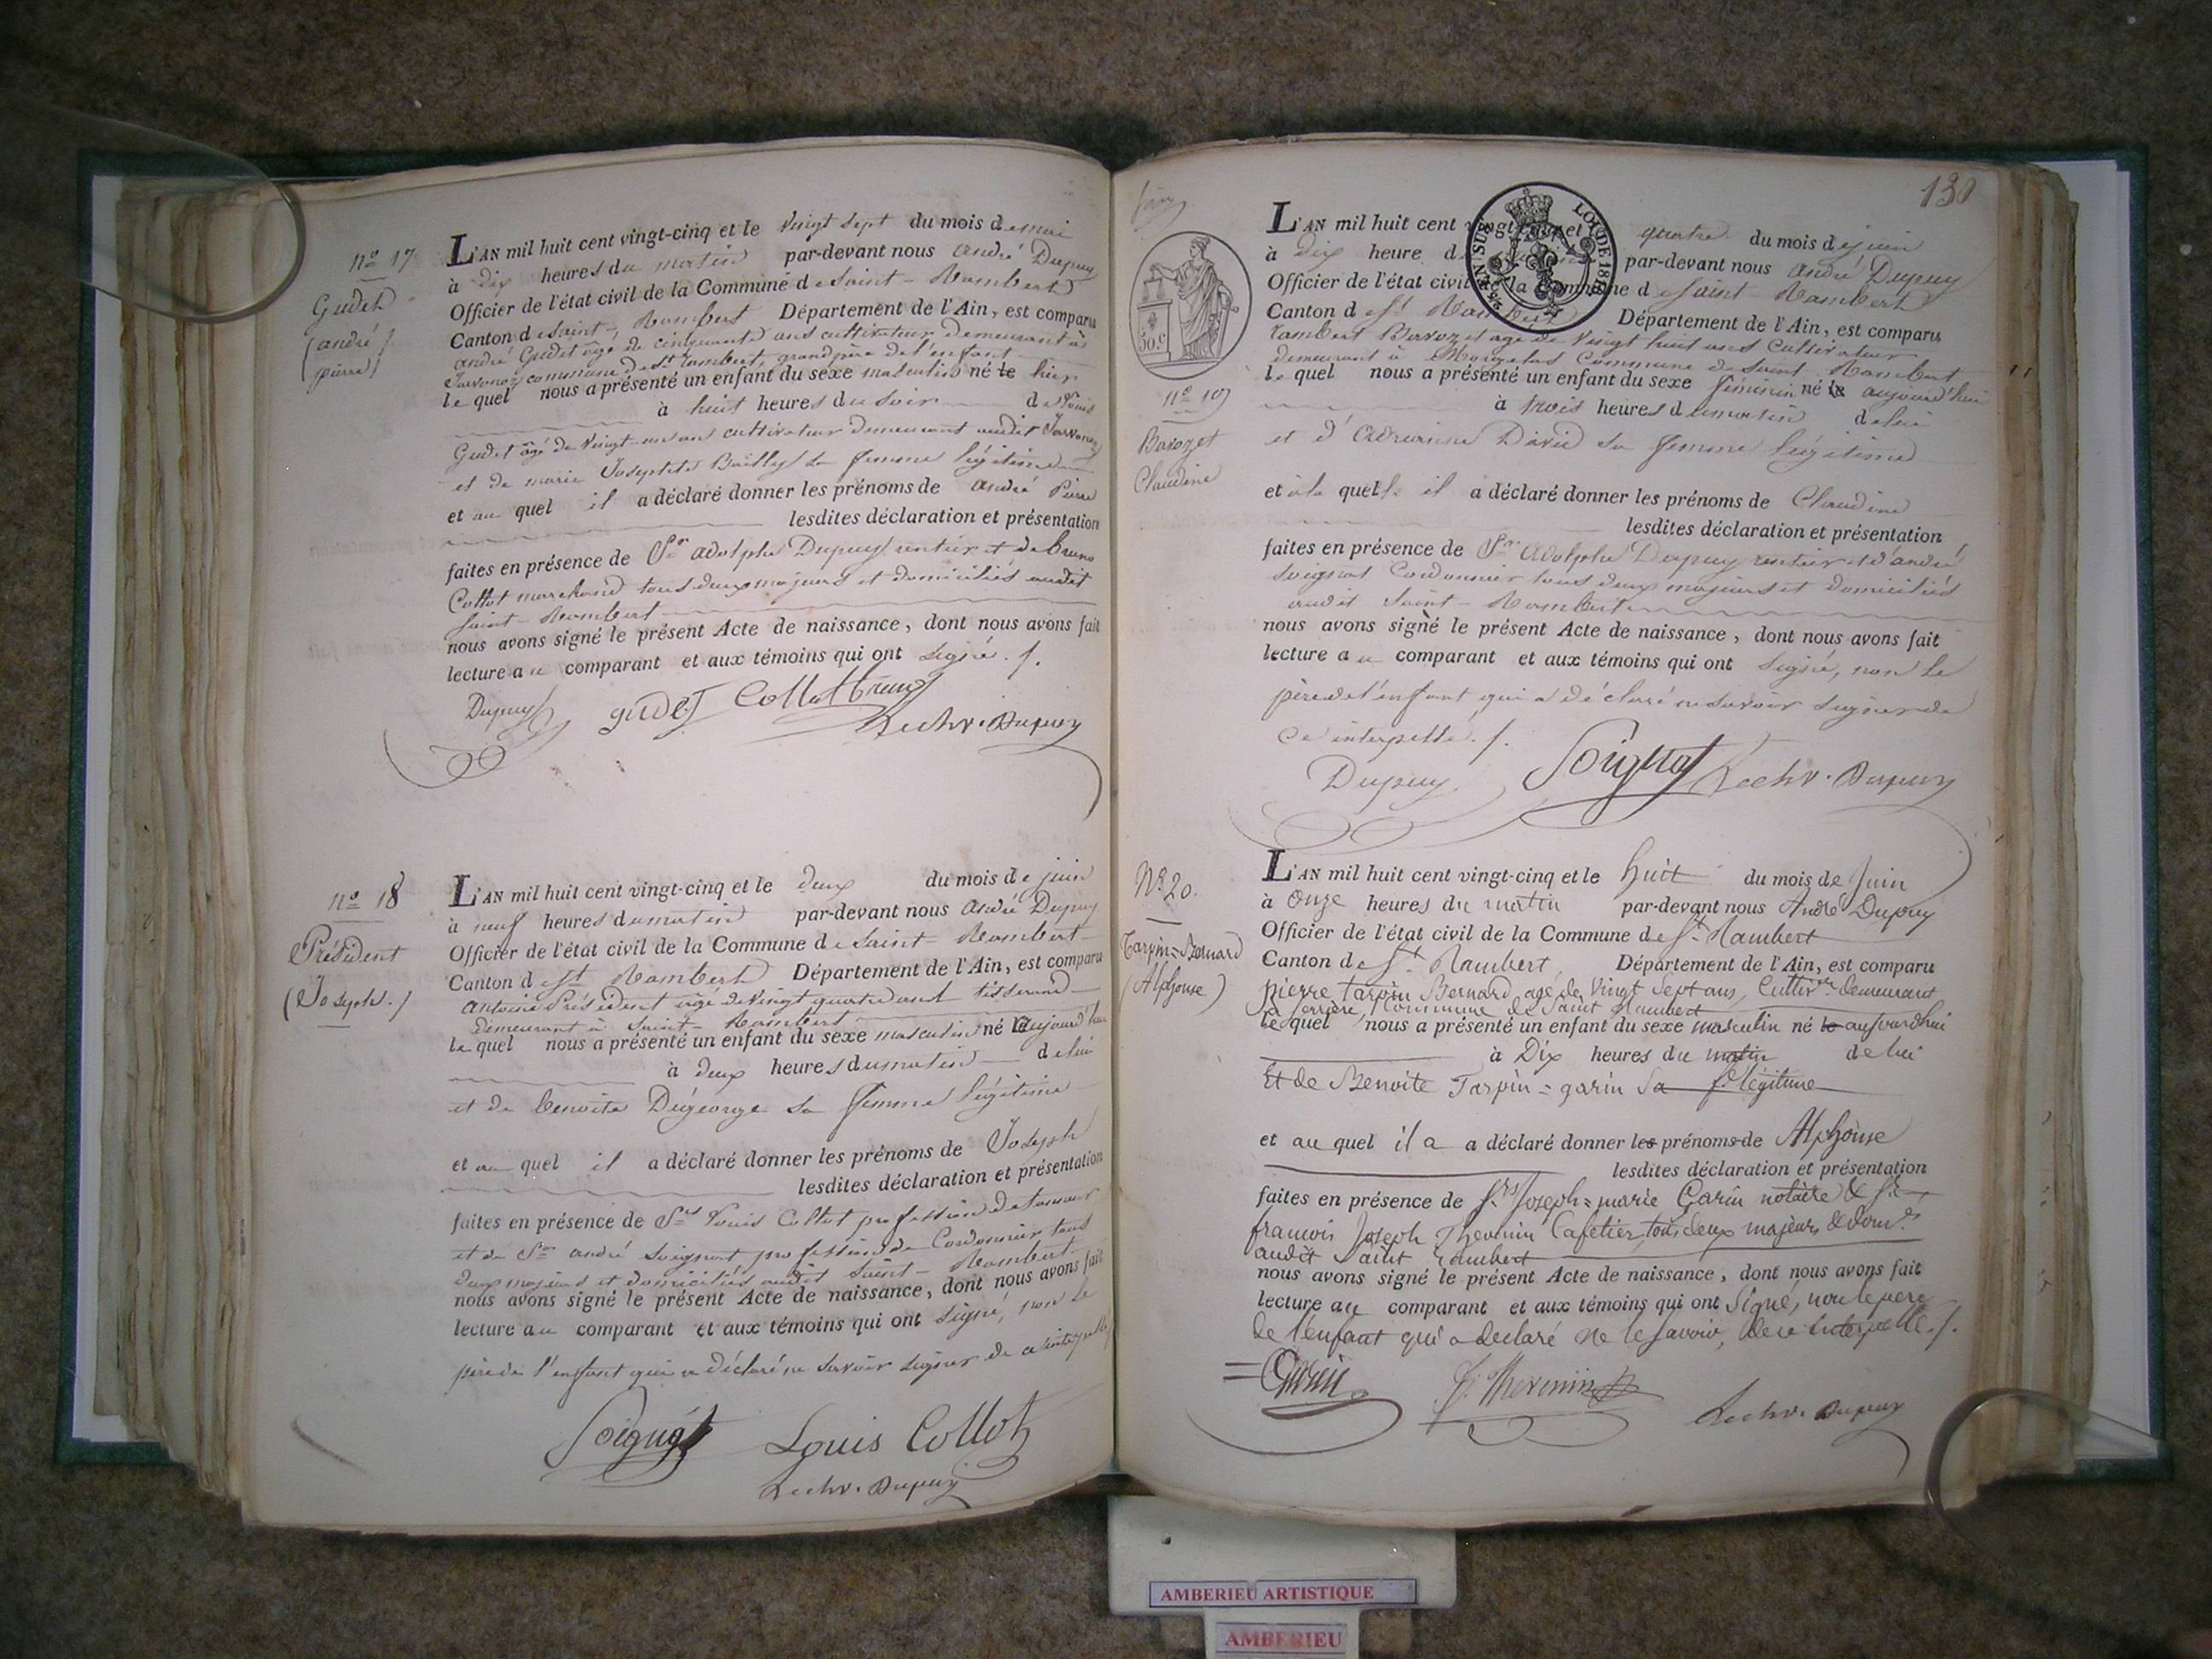 nº 17
Gudet
(andré
pierre)
L'AN mil huit cent vingt-cinq et le vingt sept du mois de mai
à dix heures du matin par-devant nous andré Dupuy
Officier de l'état civil de la Commune de Saint-Rambert
Canton de Saint-Rambert Département de l'Ain, est comparu
andré Gudet âgé de cinquante ans cultivateur demeurant à
commune de St Rambert, grand père de l'enfant
lequel nous a présenté un enfant du sexe masculin né le hier
à huit heures du soir de Louis
Gudet âgé de vingt un ans cultivateur demeurant audit
et de marie Josephte Bailly sa femme légitime
et au quel il a déclaré donner les prénoms de andré Pierre
lesdites déclaration et présentation
faites en présence de Sr adolphe Dupuy rentier et de bruno
Collot marchand tous deux majeurs et domiciliés audit
Saint-Rambert
nous avons signé le présent Acte de naissance, dont nous avons fait
lecture au comparant et aux témoins qui ont signé.
Dupuy gudet Collot bruno
Dupuy
nº 18
Président
(Joseph.)
L'AN mil huit cent vingt-cinq et le deux du mois de juin
à neuf heures du matin par-devant nous andré Dupuy
Officier de l'état civil de la Commune de Saint-Rambert
Canton de St Rambert Département de l'Ain, est comparu
antoine Président âgé de vingt quatre ans tisserand
demeurant à Saint-Rambert
lequel nous a présenté un enfant du sexe masculin né aujourd'hui
à deux heures du matin de lui
et de benoite Dégeorge sa femme légitime
et au quel il a déclaré donner les prénoms de Joseph
lesdites déclaration et présentation
faites en présence de Srs Louis Collot profession de
et de Sr andré Soignat profession de Cordonnier tous
deux majeurs et domiciliés audit Saint-Rambert
nous avons signé le présent Acte de naissance, dont nous avons fait
lecture au comparant et aux témoins qui ont signé, non le
père de l'enfant qui a déclaré ne savoir signer de ce interpellé
Soignat Louis Collot
Dupuy
130
50.c
EN SUS
LOI DE 1816
nº 19
Barozet
Claudine
L'AN mil huit cent vingt-cinq et le quatre du mois de juin
à dix heure du matin par-devant nous andré Dupuy
Officier de l'état civil de la Commune de Saint-Rambert
Canton de St Rambert Département de l'Ain, est comparu
rambert Barozet âgé de vingt huit ans Cultivateur
demeurant à Commune de Saint Rambert
lequel nous a présenté un enfant du sexe féminin né le aujourd'hui
à trois heures du matin de lui
et d'adrienne David sa femme légitime
et à la quelle il a déclaré donner les prénoms de Claudine
lesdites déclaration et présentation
faites en présence de Srs Adolphe Dupuy rentier et d'andré
Soignat Cordonnier tous deux majeurs et domiciliés
audit Saint-Rambert
nous avons signé le présent Acte de naissance, dont nous avons fait
lecture au comparant et aux témoins qui ont signé, non le
père de l'enfant qui a déclaré ne savoir signer de
ce interpellé.
Dupuy Soignat Dupuy
Nº 20.
Tarpin=Bernard
(Alphonse)
L'AN mil huit cent vingt-cinq et le huit du mois de Juin
à Onze heures du matin par-devant nous André Dupuy
Officier de l'état civil de la Commune de St Rambert
Canton de St Rambert Département de l'Ain, est comparu
pierre tarpin Bernard agé de vingt Sept ans, Cultivr demeurant
à Serrière, Commune de Saint Rambert
lequel nous a présenté un enfant du sexe masculin né le aujourdhui
à Dix heures du matin de lui
Et de Benoite Tarpin=garin Sa fe légitime
et au quel il a a déclaré donner les prénoms de Alphonse
lesdites déclaration et présentation
faites en présence de Srs Joseph=marie Garin notaire & Sr
francois Joseph Thevenin Cafetier, tous deux majeurs & domés
audit Saint Rambert
nous avons signé le présent Acte de naissance, dont nous avons fait
lecture au comparant et aux témoins qui ont Signé, non le pere
de l'enfant qui a declaré ne le savoir, de ce interpellé.
Garin J. Thevenin Dupuy
AMBERIEU ARTISTIQUE
AMBERIEU